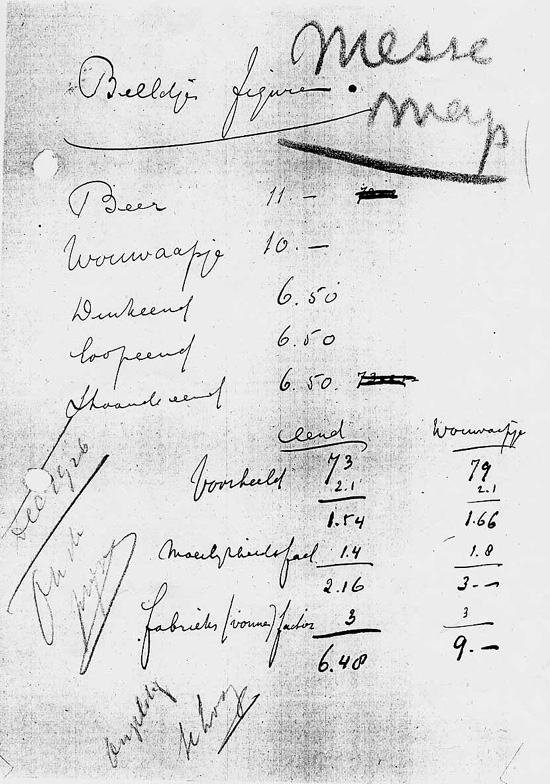 Messe
map
Beeldjes figuren.
Beer 11.—
Wouwaapje 10.—
Duikeend 6.50
Loopeend 6.50
Staande eend 6.50
eend Wouwaapje
Voorbeeld 73 79
2.1 2.1
1.54 1.66
Moeilijkheidsfact. 1.4 1.8
2.16 3.—
Fabrieks (vorme) factor 3 3
6.48 9.—
Dec 1926
Oude
prijzen
te hoog